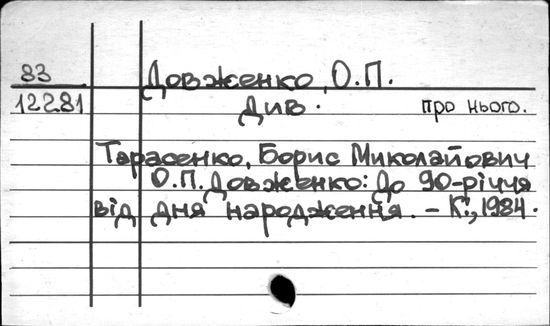 83 Довженко, О.П.
12281 Див. про нього.
Тарасенко, Борис Миколайович
О.П. Довженко: До 90-річчя
від дня народження. – К., 1984.